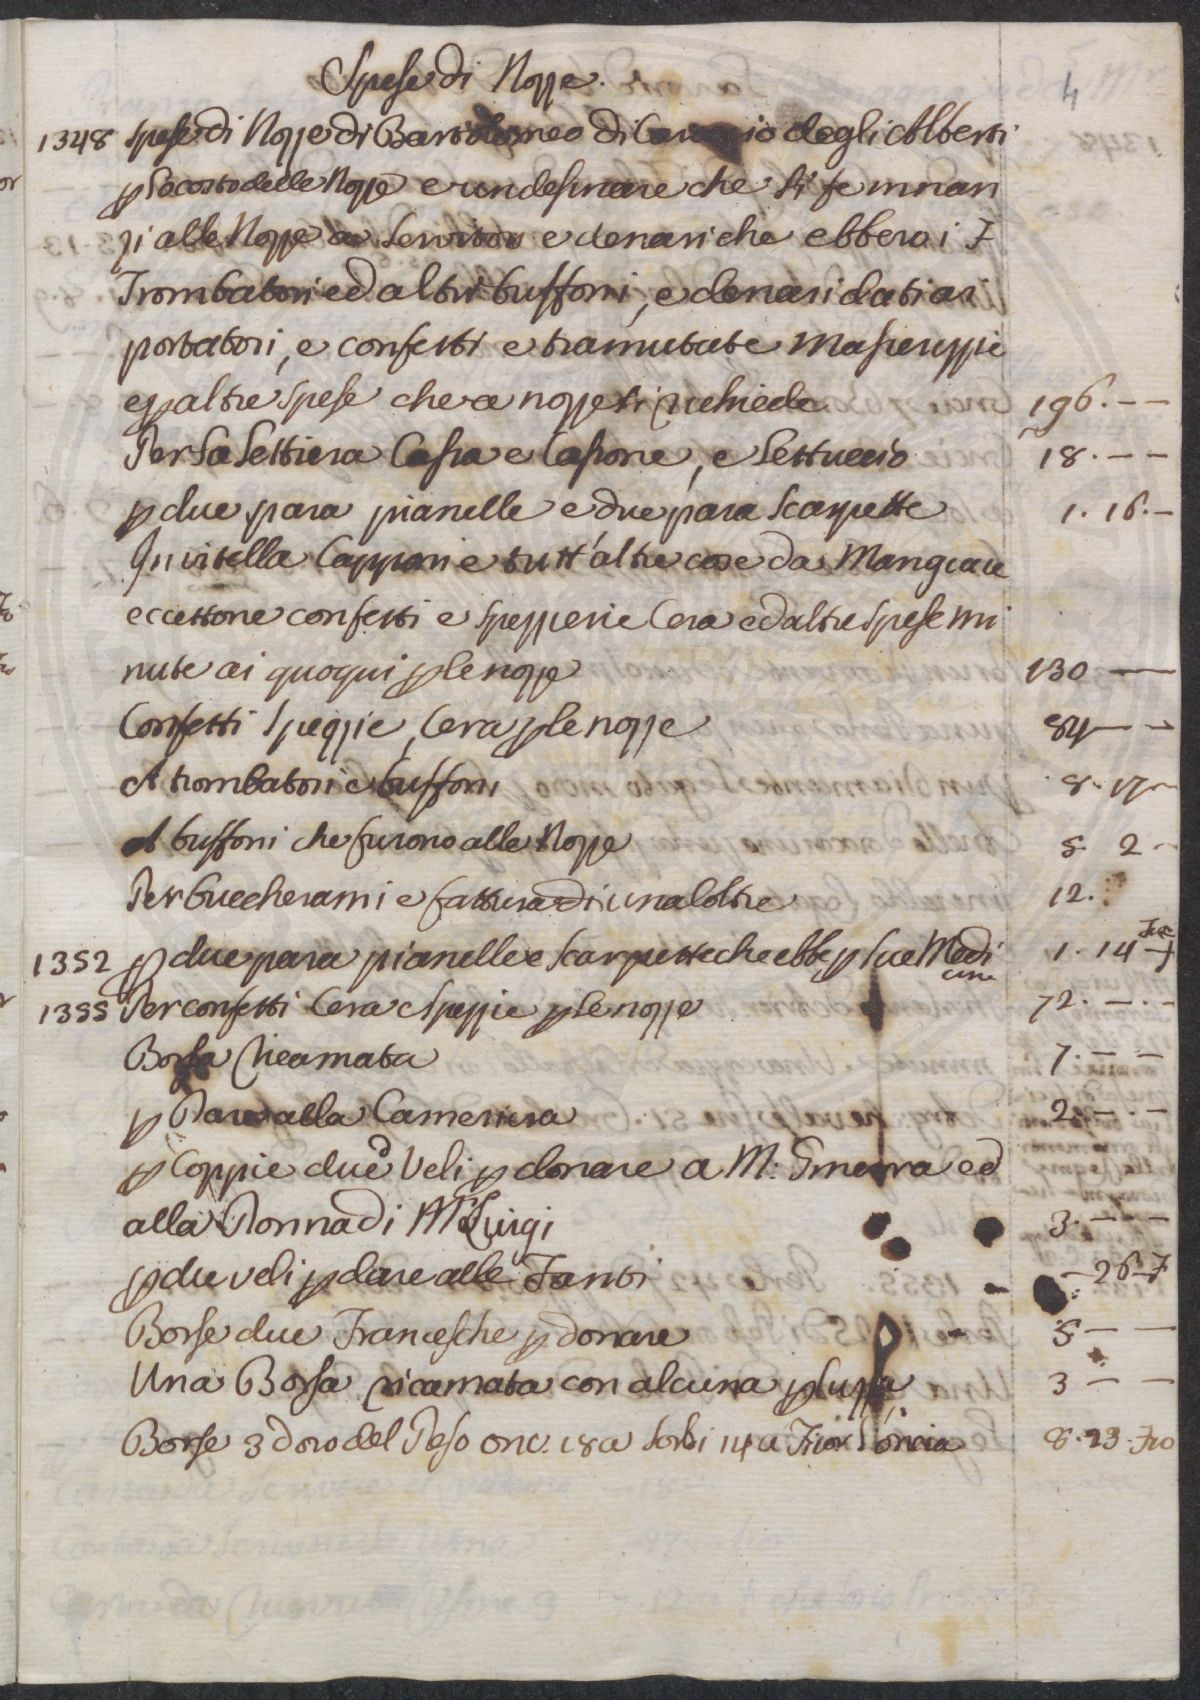 Spese di Nozze.
4
1348 Spese di Nozze di Bartolomeo di Caroccio degli Alberti
p lo costo delle Nozze e un desinare che si fe innan
zi alle Nozze a servitori e denari che ebbero i
Trombatori ed altri buffoni, e denari dati ai
portatori, e confetti e tramutate Masserizzie
e p altre spese che a nozze si richiede 196. — —
Per la Lettiera Cassa e Cassone, e Lettuccio 18. — —
p due para pianelle e due para Scarpette 1. 16. —
In vitella Capponi e tutt'altre cose da Mangiare
eccettone confetti e spezzerie Cera ed altre spese mi
nute ai quoqui p le nozze 130 —
Confetti Spezzie, Cera p le nozze 84 — —
A trombatori e buffoni 8. 17 —
A buffoni che furono alle Nozze 5. 2 —
Per buccherami e fattura di una Coltre 12.
1352 p due para pianelle e scarpette che ebbe p sue Medi 1. 14
cine
1355 Per confetti Cera e spezzie p le nozze 72. — . —
Borsa ricamata 7. — —
p Dare alla Cameriera 2 — . —
p Coppie due Veli p donare a M: Ginevra ed
alla Donna di Mr Luigi 3. — — —
p due veli p dare alle Fanti — 26
Borse due Francesche p donare 5 — —
Una Borsa ricamata con alcuna 3 — —
Borse 3 d'oro del Peso onc. 18 a soldi 14 a Fior l'oncia 8. 23.